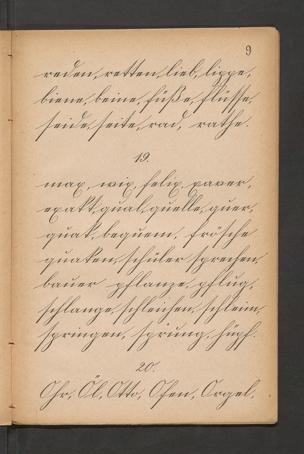 9
reden, retten, lieb, lippe,
biene, beine, füße, flüsse,
seide, seite, rad, rathe.
19.
max, wix, felix, xaver,
exakt, qual, quelle, quer,
quak, bequem, frösche
quaken, schüler sprechen,
bauer pflanze, pflug,
schlange, schleichen, schleim,
springen, sprung, hüpf.
20.
Ohr, Öl, Otto, Ofen, Orgel,